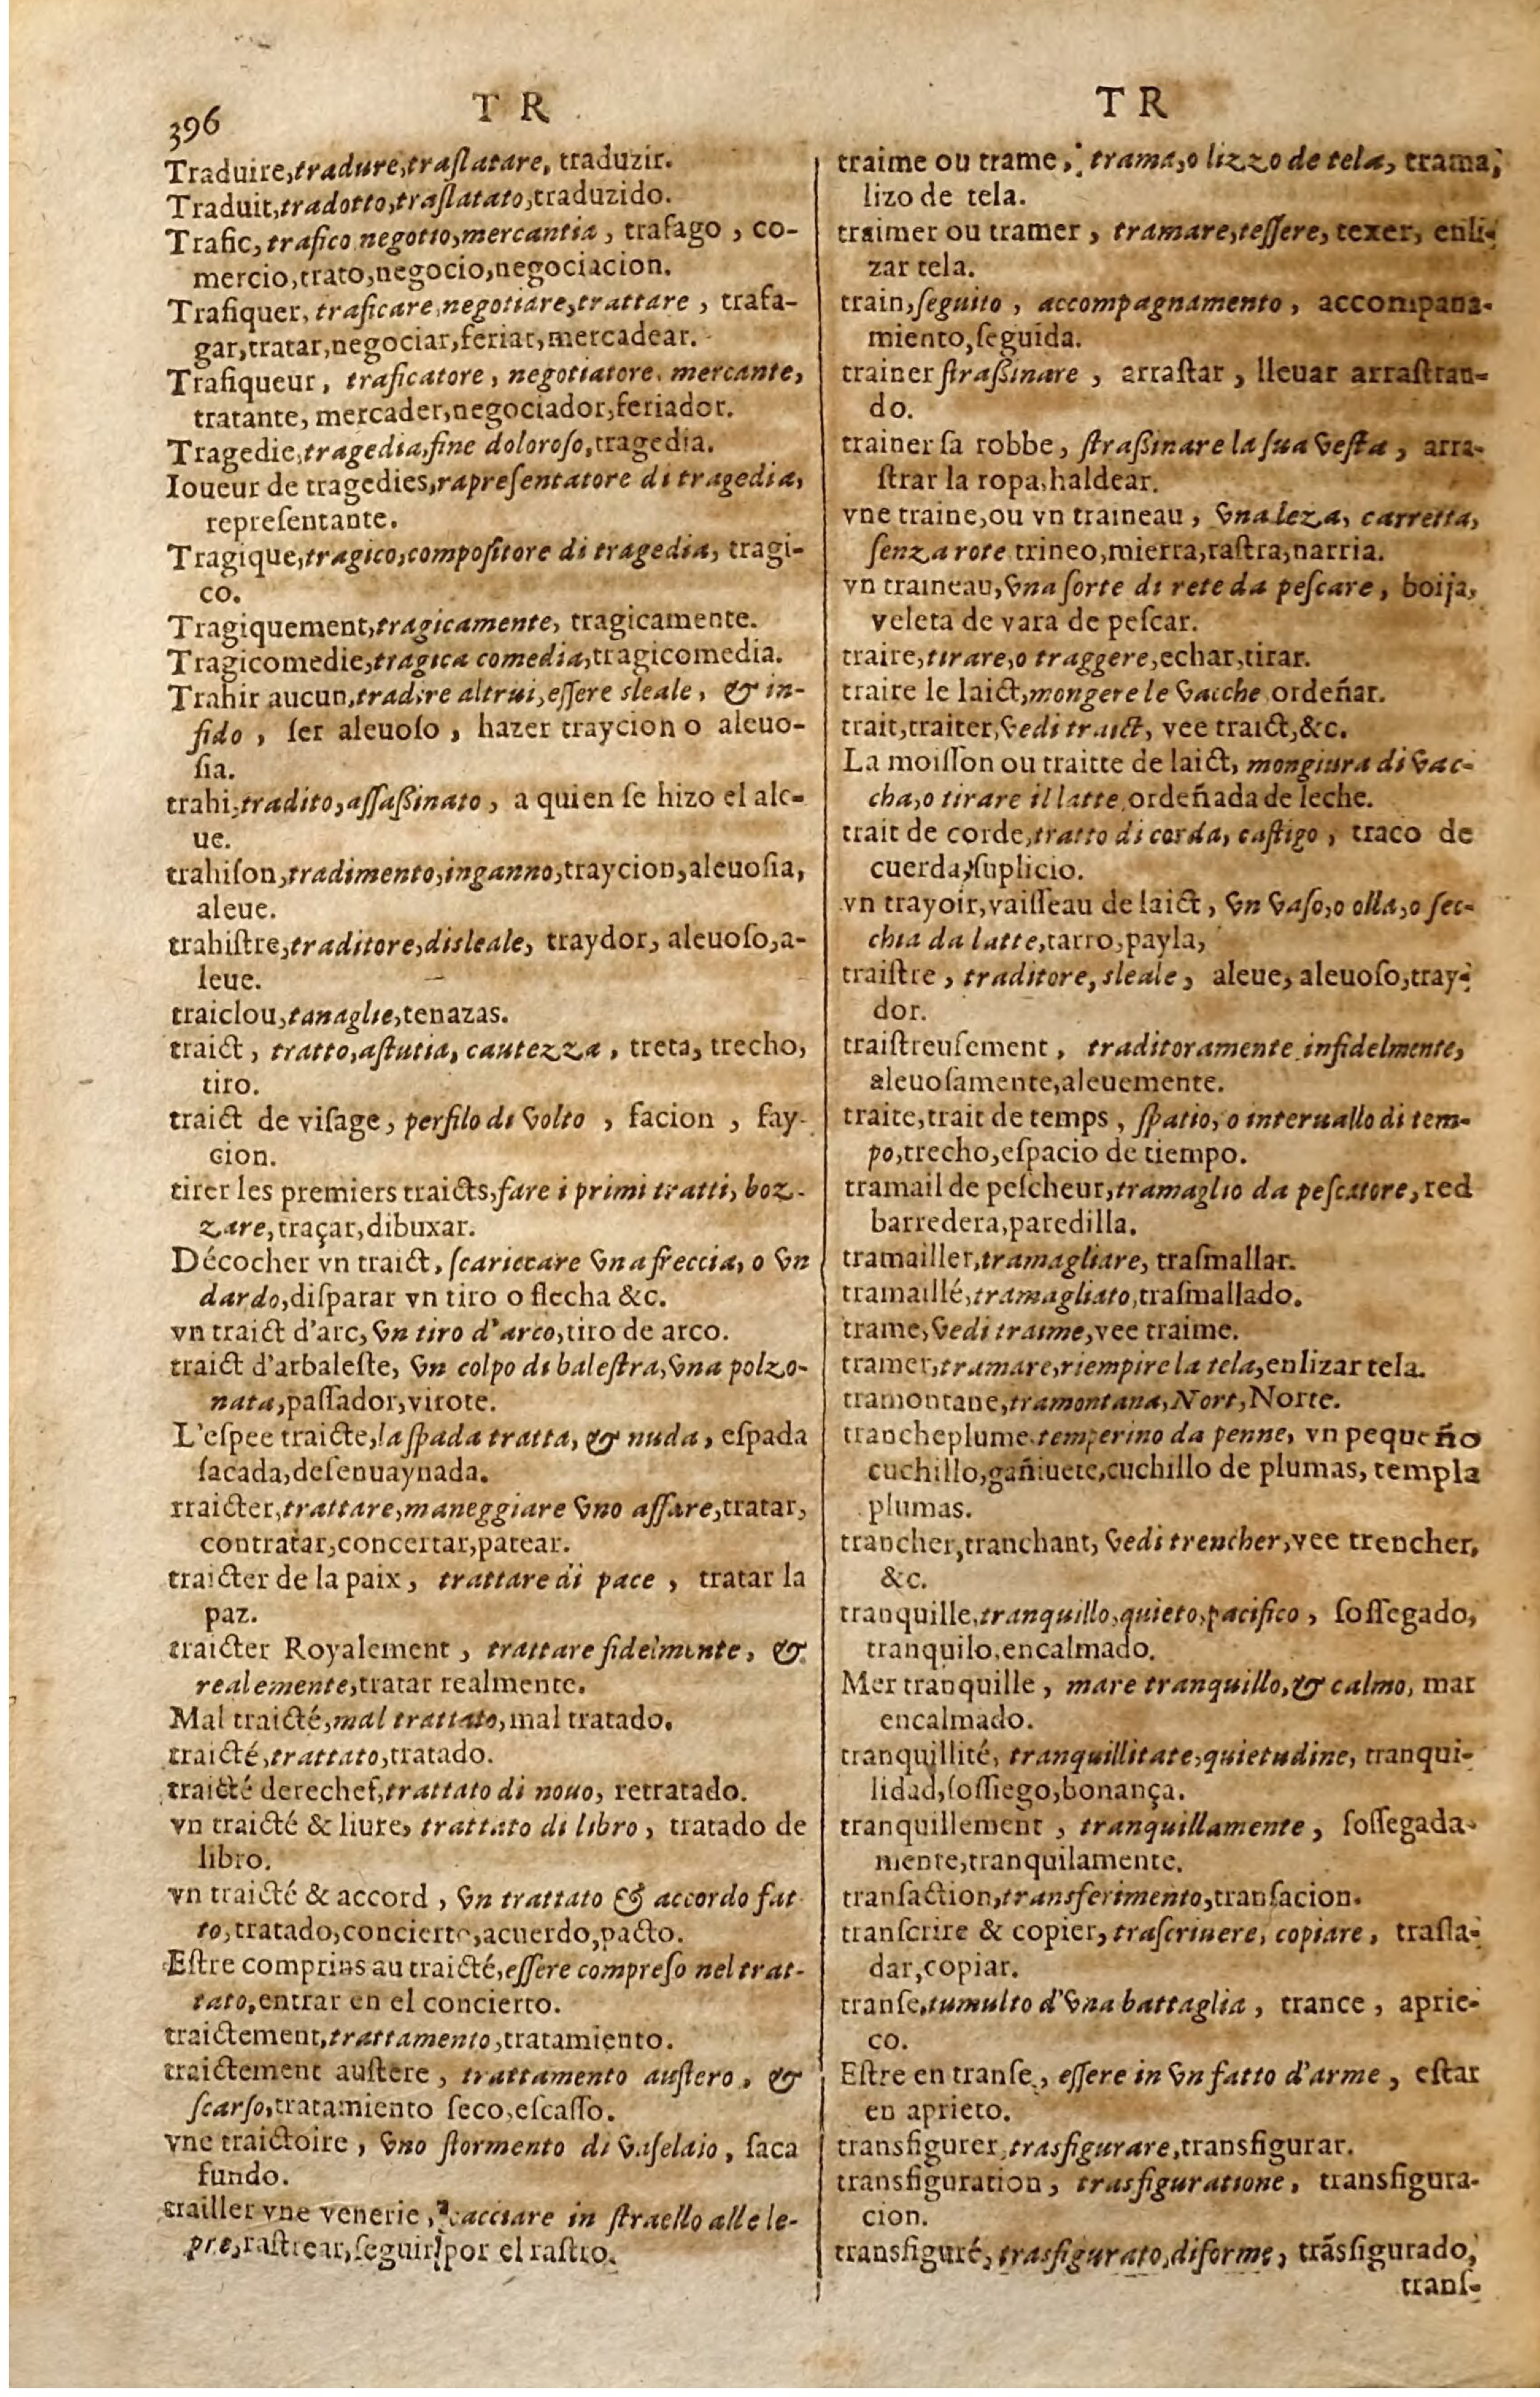 396
T R
Traduire,tradure,traſlatare, traduzir.
Traduit,tradotto,traſlatato,traduzido.
Trafic, trafico negotto,mercantia, trafago, co-
mercio,trato,negocio,negociacion.
Trafiquer, traficare,negotiare,trattare, trafa-
gar,tratar,negociar,feriar,mercadear.
Trafiqueur, traficatore, negotiatore, mercante,
tratante, mercader,negociador,feriador.
Tragedie,tragedia,fine doloroſo,tragedia.
Ioueur de tragedies,rapreſentatore di tragedia,
repreſentante.
Tragique,tragico,compoſitore di tragedia, tragi-
co.
Tragiquement,tragicamente, tragicamente.
Tragicomedie,tragica comedia,tragicomedia.
Trahir aucun,tradire altrui,eſſere sleale, & in-
fido, ſer aleuoſo, hazer traycion o aleuo-
ſia.
trahi,tradito,aſſaßinato, a quien ſe hizo el ale-
ue.
trahiſon,tradimento,inganno,traycion,aleuoſia,
aleue.
trahiſtre,traditore,disleale, traydor, aleuoſo,a-
leue.
traiclou,tanaglie,tenazas.
traict, tratto,aſtutia, cautezza, treta, trecho,
tiro.
traict de viſage, perfilo di volto, facion, fay-
cion.
tirer les premiers traicts,fare i primi tratti, boz-
zare,traçar,dibuxar.
Décocher vn traict, ſcariecare vna freccia, o vn
dardo,diſparar vn tiro o flecha &c.
vn traict d'arc, vn tiro d'arco,tiro de arco.
traict d'arbaleſte, vn colpo di baleſtra,vna polzo-
nata,paſſador,virote.
L'eſpee traicte,la ſpada tratta, & nuda, eſpada
ſacada,deſenuaynada.
traicter,trattare,maneggiare vno affare,tratar,
contratar,concertar,patear.
traicter de la paix, trattare di pace, tratar la
paz.
traicter Royalement, trattare fidelmente, &
realemente,tratar realmente.
Mal traicté,mal trattato,mal tratado.
traicté,trattato,tratado.
traicté derechef,trattato di nouo, retratado.
vn traicté & liure, trattato di libro, tratado de
libro.
vn traicté & accord, vn trattato & accordo fat-
to,tratado,concierto,acuerdo,pacto.
Eſtre comprins au traicté,eſſere compreſo nel trat-
tato,entrar en el concierto.
traictement,trattamento,tratamiento.
traictement auſtere, trattamento auſtero, &
ſcarſo,tratamiento ſeco,eſcaſſo.
vne traictoire, vno ſtormento di vaſelaio, ſaca
fundo.
trailler vne venerie, cacciare in ſtraello alle le-
pre,raſtrear,ſeguir por el raſtro.
T R
traime ou trame, trama,o lizzo de tela, trama,
lizo de tela.
traimer ou tramer, tramare,teſſere, texer, enli-
zar tela.
train,ſeguito, accompagnamento, accompana-
miento,ſeguida.
trainer ſtraßinare, arraſtar, lleuar arraſtran-
do.
trainer ſa robbe, ſtraßinare la ſua veſta, arra-
ſtrar la ropa,haldear.
vne traine,ou vn traineau, vna leza, carretta,
ſenza rote trineo,mierra,raſtra,narria.
vn traineau,vna ſorte di rete da peſcare, boija,
veleta de vara de peſcar.
traire,tirare,o traggere,echar,tirar.
traire le laict,mongere le vacche ordeñar.
trait,traiter,vedi traict, vee traict,&c.
La moiſſon ou traitte de laict, mongiura di vac-
cha,o tirare il latte,ordeñada de leche.
trait de corde,tratto di corda, caſtigo, traco de
cuerda,ſuplicio.
vn trayoir,vaiſſeau de laict, vn vaſo,o olla,o ſec-
chia da latte,tarro,payla,
traiſtre, traditore, sleale, aleue, aleuoſo,tray-
dor.
traiſtreuſement, traditoramente infidelmente,
aleuoſamente,aleuemente.
traite,trait de temps, ſpatio, o interuallo di tem-
po,trecho,eſpacio de tiempo.
tramail de peſcheur,tramaglio da peſcatore,red
barredera,paredilla.
tramailler,tramagliare, traſmallar.
tramaillé,tramagliato,traſmallado.
trame,vedi traime,vee traime.
tramer,tramare,riempire la tela,enlizar tela.
tramontane,tramontana,Nort,Norte.
trancheplume.temperino da penne, vn pequeño
cuchillo,gañiuete,cuchillo de plumas, templa
plumas.
trancher,tranchant, vedi trencher,vee trencher,
&c.
tranquille,tranquillo,quieto,pacifico, ſoſſegado,
tranquilo,encalmado.
Mer tranquille, mare tranquillo,& calmo, mar
encalmado.
tranquillité, tranquillitate,quietudine, tranqui-
lidad,ſoſſiego,bonança.
tranquillement, tranquillamente, ſoſſegada-
mente,tranquilamente.
tranſaction,transferimento,tranſacion.
tranſcrire & copier, traſcriuere, copiare, traſla-
dar,copiar.
tranſe,tumulto d'vna battaglia, trance, aprie-
co.
Eſtre en tranſe, eſſere in vn fatto d'arme, eſtar
en aprieto.
transfigurer,trasfigurare,transfigurar.
transfiguration, trasfiguratione, transfigura-
cion.
transfiguré, trasfigurato,diforme, trãsfigurado,
tranſ-